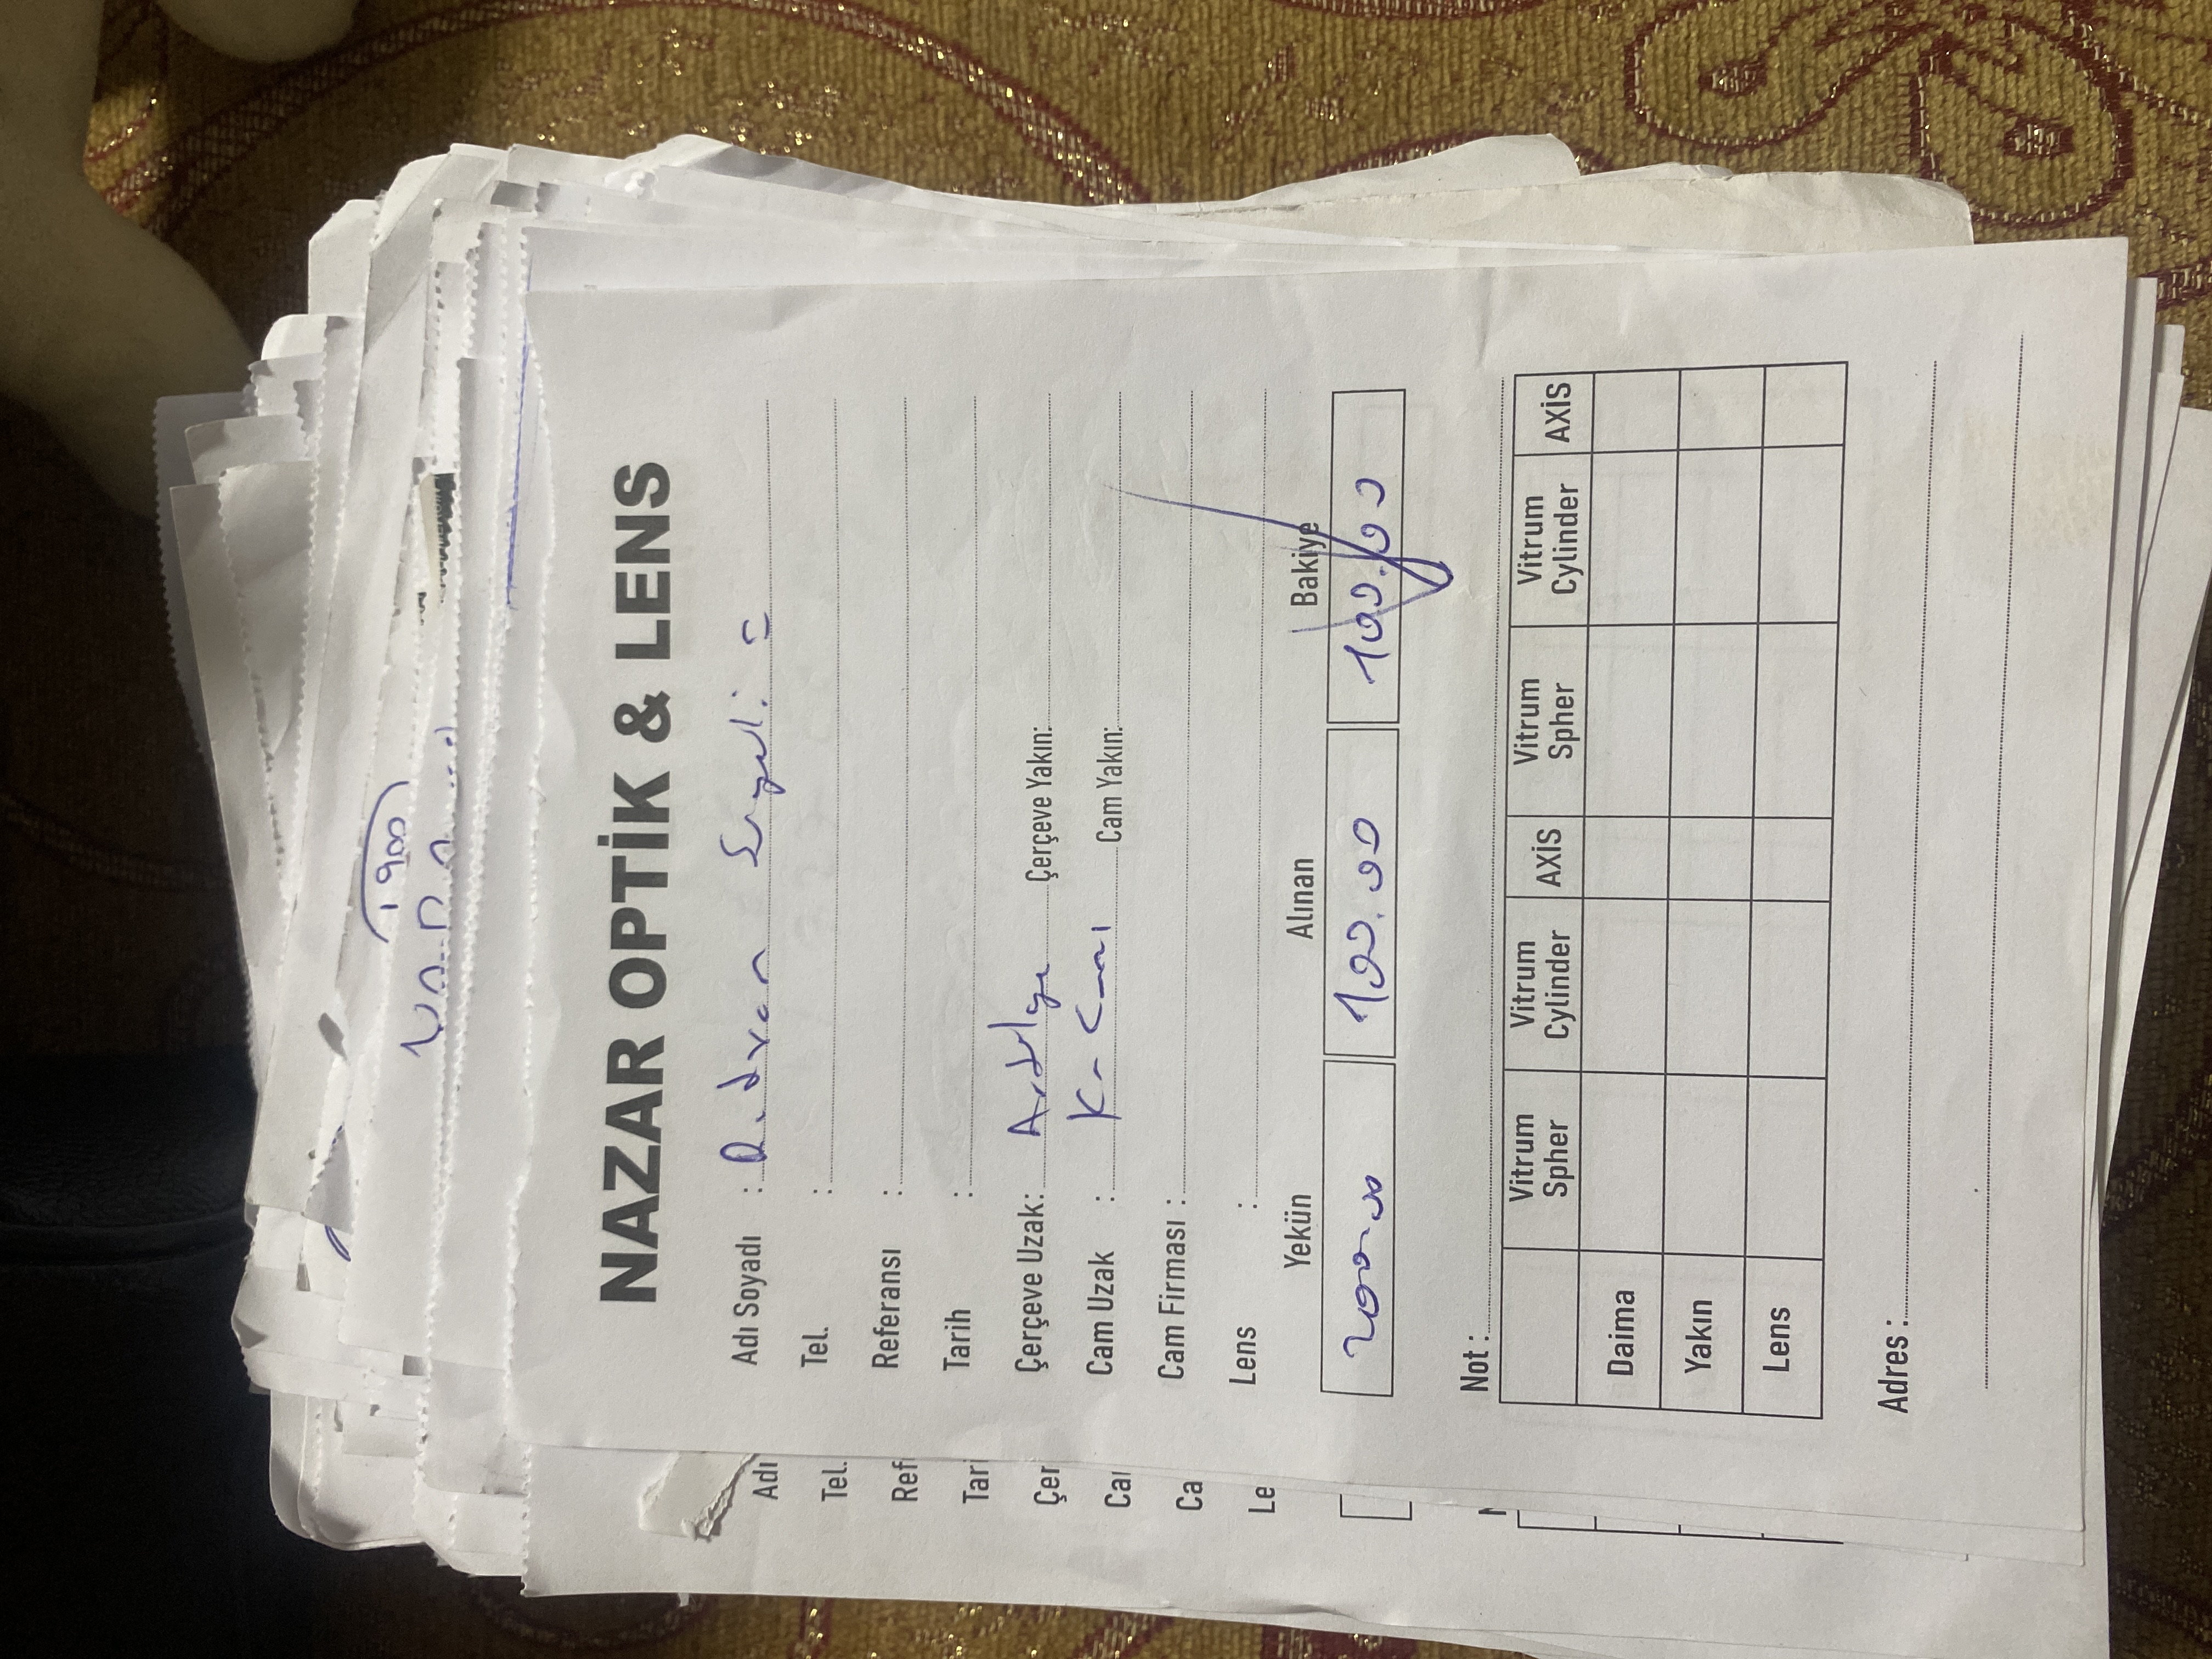 1900
NAZAR OPTİK & LENS
Adı Soyadı : Rıdvan
Tel. :
Referansı :
Tarih :
Çerçeve Uzak: Çerçeve Yakın:
Cam Uzak : Cam Yakın:
Cam Firması :
Lens :
Yekün Alınan Bakiye
200.00 100.00 100.00
Not :
Vitrum Spher Vitrum Cylinder AXİS Vitrum Spher Vitrum Cylinder AXİS
Daima
Yakın
Lens
Adres :
Adı
Tel.
Ref
Tari
Çer
Ca
Ca
Le